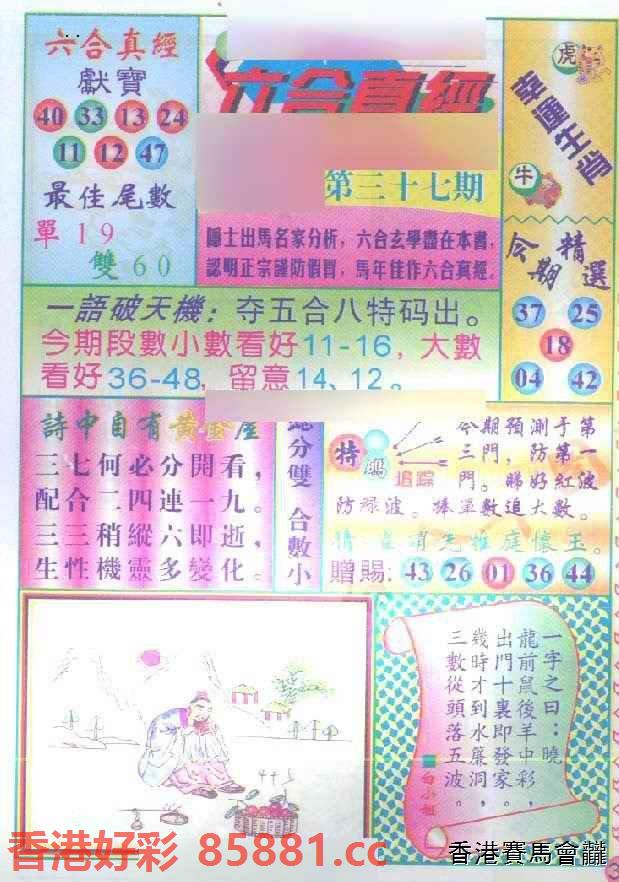 六合真經
獻寶
40 33 13 24
11 12 47
最佳尾數
單 1 9
雙 6 0
六合真經
第三十七期
隱士出馬名家分析，六合玄學盡在本書，
認明正宗謹防假冒，馬年佳作六合真經。
虎
幸運生肖
牛
今期精選
37 25
18
04 42
一語破天機：夺五合八特码出。
今期段數小數看好11-16，大數
看好36-48，留意14、12。
詩中自有黃金屋
三七何必分開看，
配合二四連一九。
三三稍縱六即逝，
生性機靈多變化。
總分雙 合數小
特碼
追踪
今期預測于第
三門，防第一
門。睇好紅波
防綠波。捧單數追大數。
贈賜：43 26 01 36 44
一字之曰：曉
龍前鼠後羊中彩，
出門十裏即發家。
幾時才到水簾洞，
三數從頭落五波。
白小姐
4+5
香港好彩 85881.cc
香港賽馬會